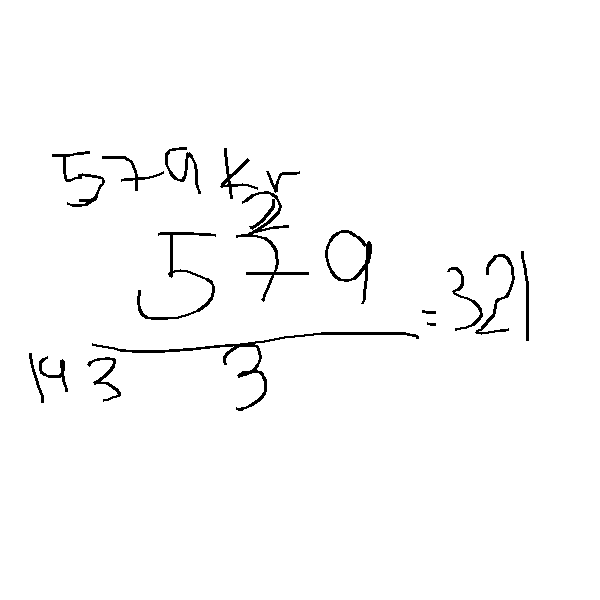 579 kr
2
579
= 321
143 3